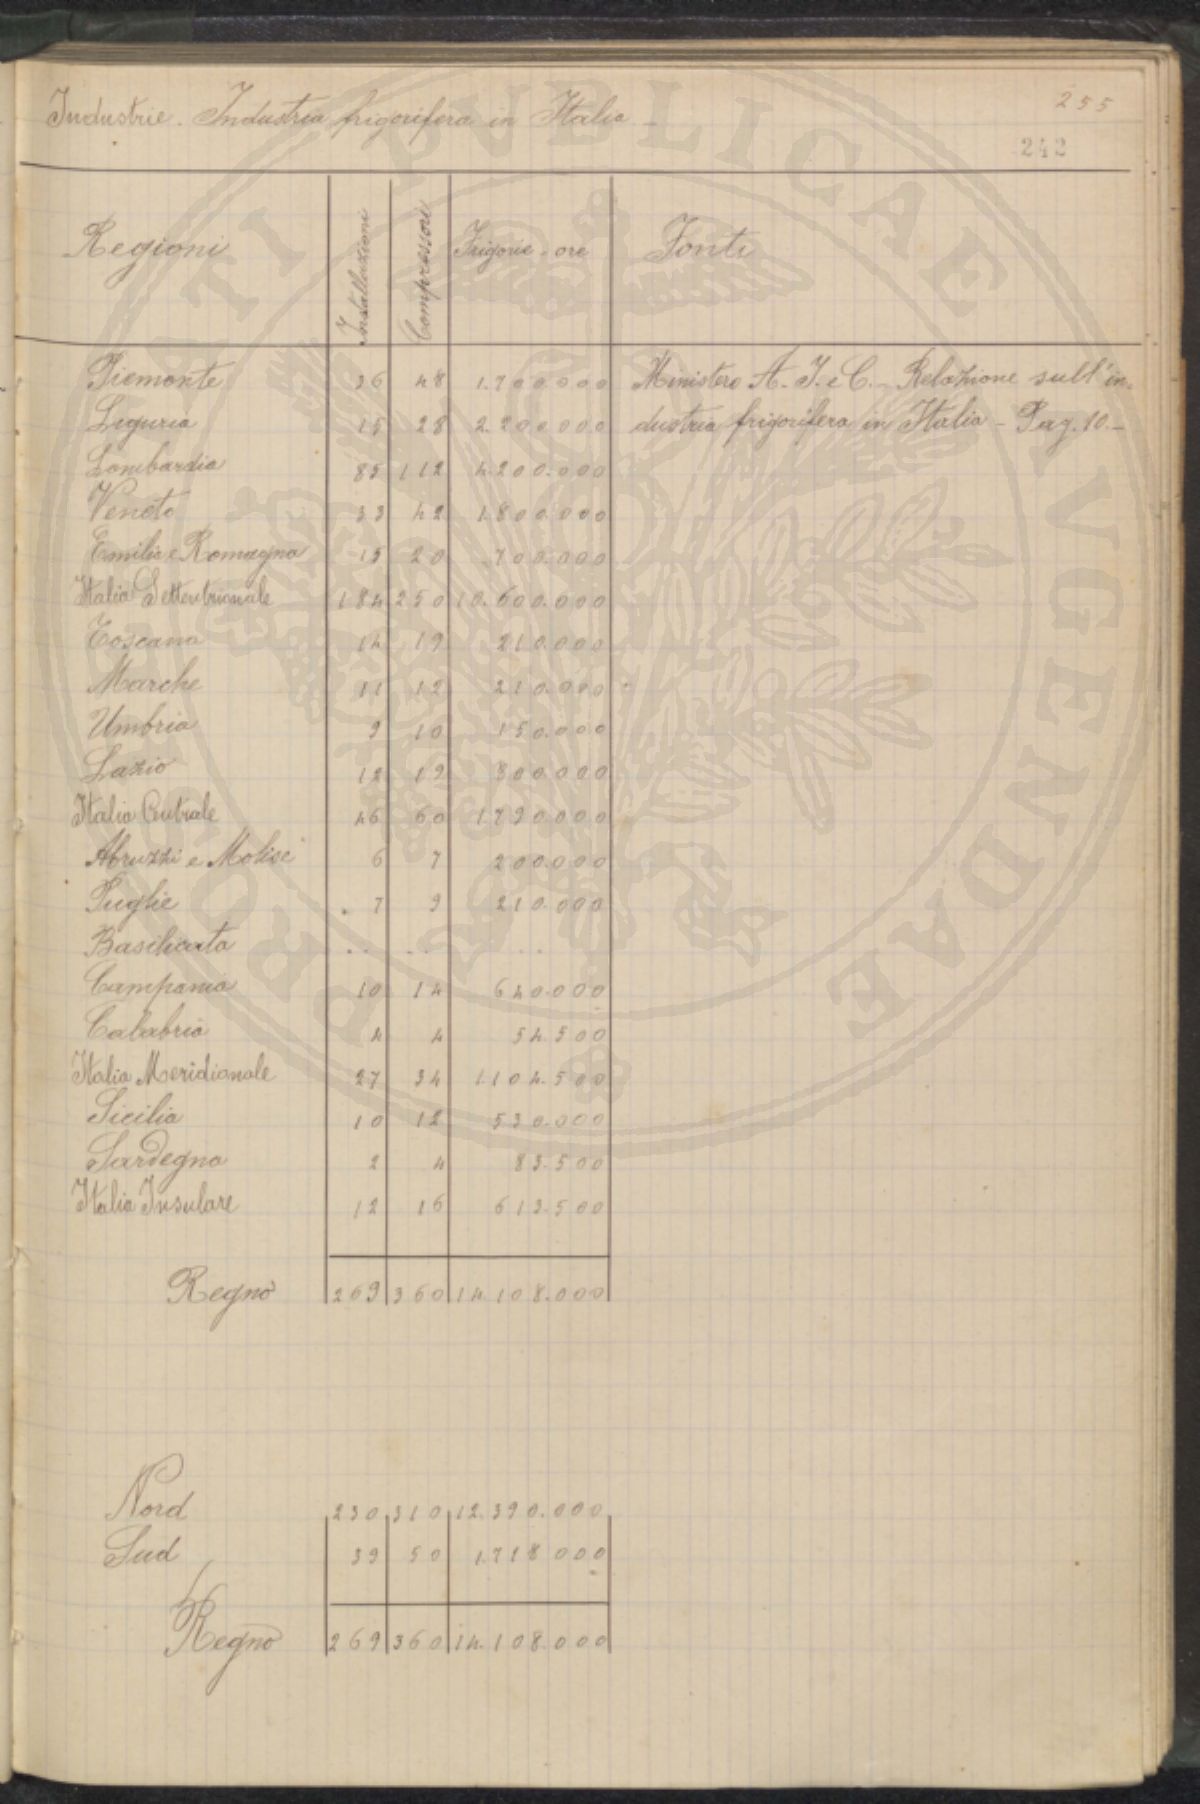 Industrie. Industria frigorifera in Italia -
255
242
Regioni Installazioni Compressori Frigorie-ore Fonti
Piemonte 36 48 1.700.000 Ministero A. I. e C. - Relazione sull'in-
Liguria 15 28 2.200.000 dustria frigorifera in Italia - Pag. 10.-
Lombardia 85 112 4.200.000
Veneto 33 42 1.800.000
Emilia e Romagna 15 20 700.000
Italia Settentrionale 184 250 10.600.000
Toscana 14 19 210.000
Marche 11 12 210.000
Umbria 9 10 150.000
Lazio 12 19 800.000
Italia Centrale 46 60 1.790.000
Abruzzi e Molise 6 7 200.000
Puglie 7 9 210.000
Basilicata .. .. ..
Campania 10 14 640.000
Calabria 4 4 54.500
Italia Meridionale 27 34 1.104.500
Sicilia 10 12 530.000
Sardegna 2 4 83.500
Italia Insulare 12 16 613.500
Regno 269 360 14.108.000
Nord 230 310 12.390.000
Sud 39 50 1.718.000
Regno 269 360 14.108.000
PUBLICAE AVGENDAE